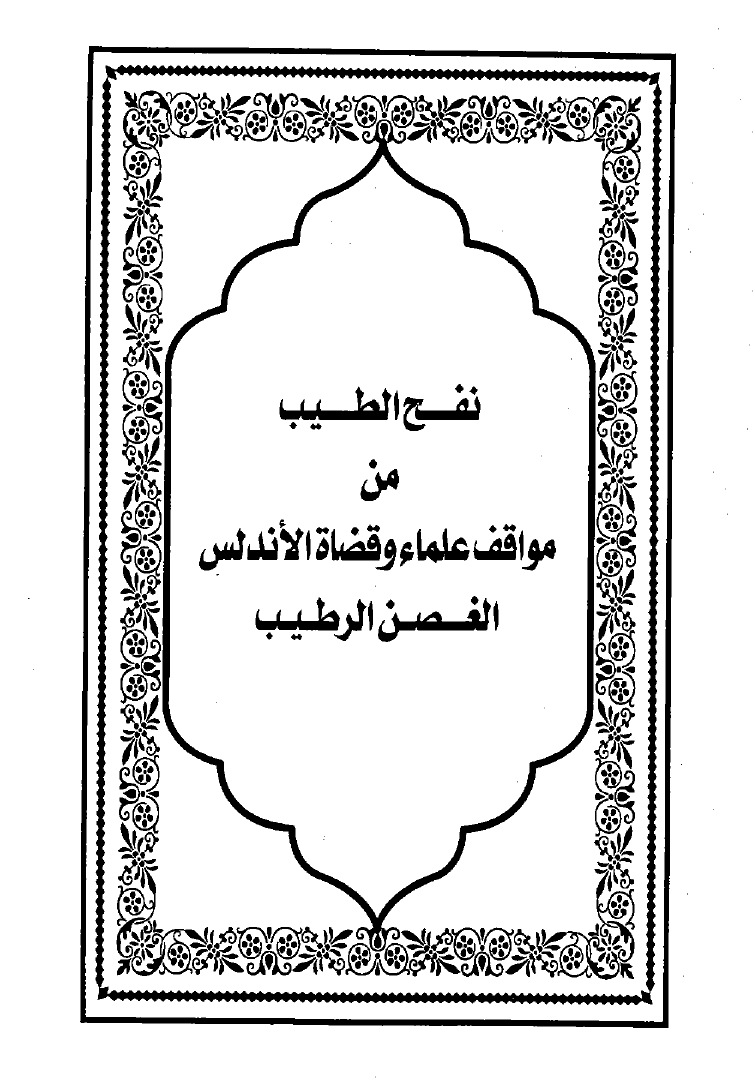 نفح الطيب
من
مواقف علماء وقضاة الأندلس
الغصن الرطيب